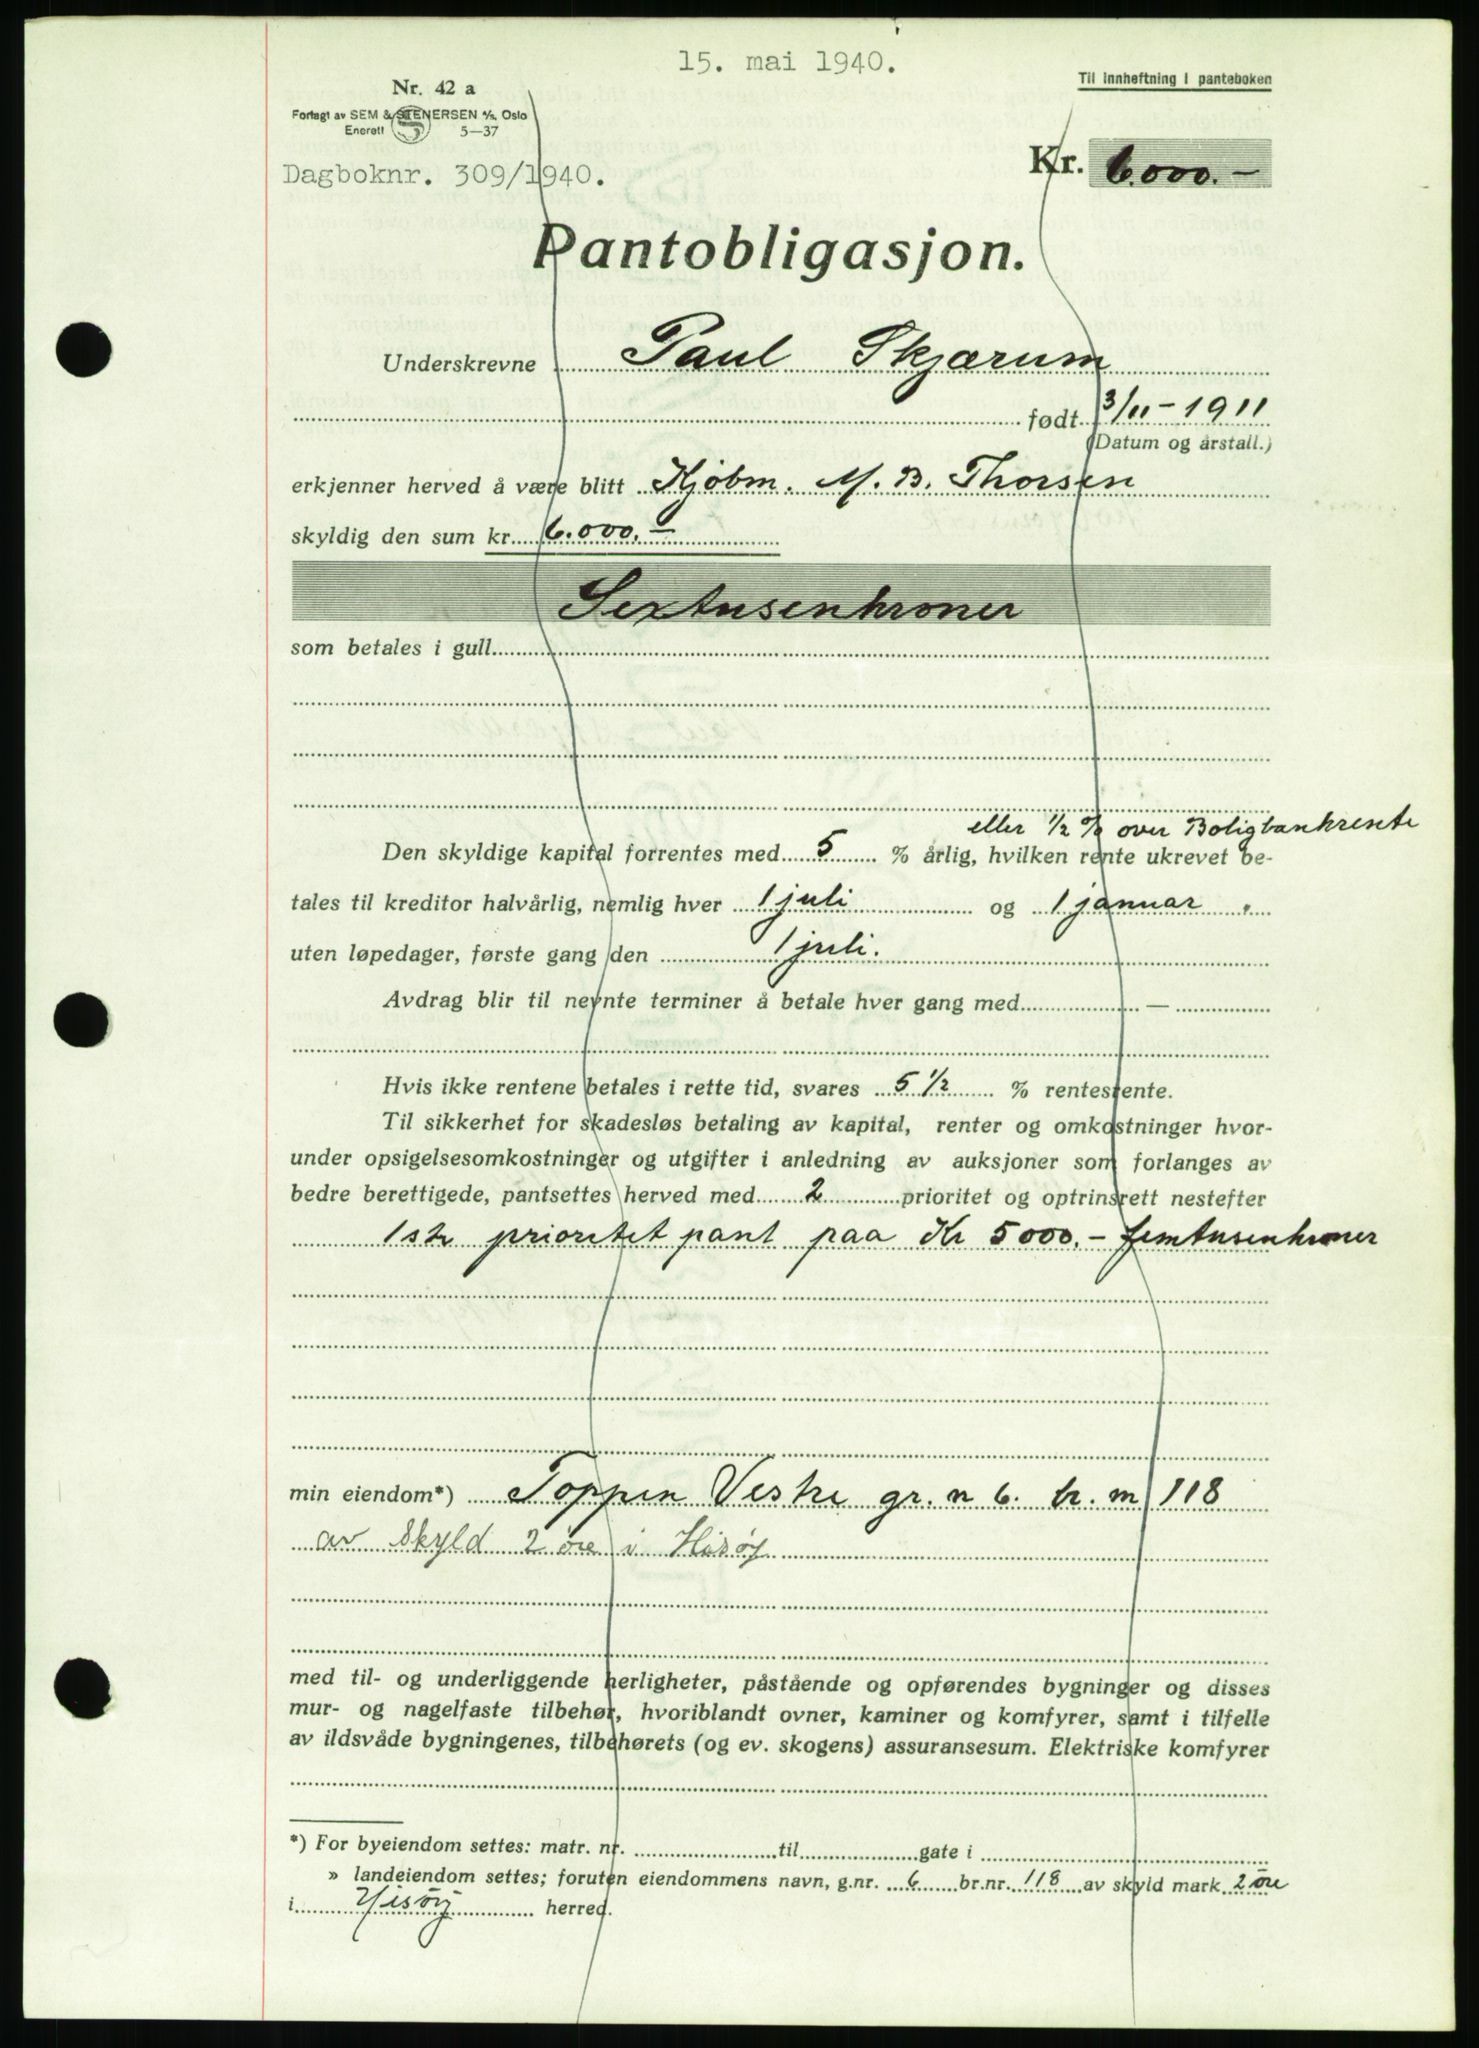 15. mai 1940.
Til innheftning i panteboken
Nr. 42 a
Forlagt av SEM & STENERSEN A/S, Oslo
Enerett 5—37
Kr. 6.000.—
Dagboknr. 309/1940.
Pantobligasjon.
Underskrevne Paul Skjærum
født 3/11-1911
(Datum og årstall.)
erkjenner herved å være blitt Kjøbm. M. B. Thorsen
skyldig den sum kr. 6.000.—
Sextusenkroner
som betales i gull
eller 1/2 % over Boligbankrente
Den skyldige kapital forrentes med 5 % årlig, hvilken rente ukrevet be-
tales til kreditor halvårlig, nemlig hver 1 juli og 1 januar.
uten løpedager, første gang den 1 juli.
Avdrag blir til nevnte terminer å betale hver gang med —
Hvis ikke rentene betales i rette tid, svares 5 1/2 % rentesrente.
Til sikkerhet for skadesløs betaling av kapital, renter og omkostninger hvor-
under opsigelsesomkostninger og utgifter i anledning av auksjoner som forlanges av
bedre berettigede, pantsettes herved med 2 prioritet og optrinsrett nestefter
1ste prioritet pant paa Kr 5000.— femtusenkroner
min eiendom*) Toppen Vestre gr. n 6. br. m 118
av Skyld 2 øre i Hisøy
med til- og underliggende herligheter, påstående og opførendes bygninger og disses
mur- og nagelfaste tilbehør, hvoriblandt ovner, kaminer og komfyrer, samt i tilfelle
av ildsvåde bygningenes, tilbehørets (og ev. skogens) assuransesum. Elektriske komfyrer
*) For byeiendom settes: matr. nr. til gate i
» landeiendom settes; foruten eiendommens navn, g.nr. 6 br.nr. 118 av skyld mark 2 øre
i Hisöy herred.